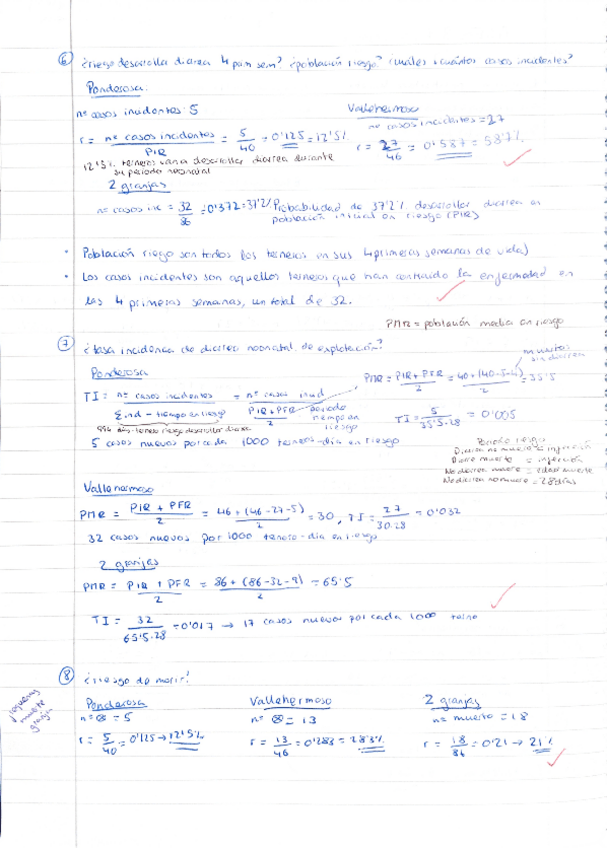 6 ¿riesgo desarrolla diarrea 4 prim sem? ¿población riesgo? ¿cuáles y cuántos casos incidentes?
Ponderosa:
nº casos incidentes: 5
r = nº casos incidentes / PIR = 5/40 = 0'125 = 12'5%
12'5% terneros van a desarrollar diarrea durante su periodo neonatal
Vallehermoso
nº casos incidentes = 27
r = 27/46 = 0'587 = 58'7%
2 granjas
nº casos inc = 32/86 = 0'372 = 37'2% Probabilidad de 37'2% desarrollar diarrea en población inicial en riesgo (PIR)
• Población riesgo son todos los terneros en sus 4 primeras semanas de vida)
• Los casos incidentes son aquellos terneros que han contraido la enfermedad en
las 4 primeras semanas, un total de 32.
PMR = población media en riesgo
7 ¿tasa incidencia de diarrea neonatal de explotación?
Ponderosa
PMR = PIR + PFR / 2 = 40 + (40-5-4) / 2 = 35'5
muertos sin diarrea
TI = nº casos incidentes / Σ ind - tiempo en riesgo = nº casos incid / PIR + PFR / 2 periodo tiempo en riesgo
TI = 5 / 35'5·28 = 0'005
5 casos nuevos por cada 1000 ternero-día en riesgo
Periodo riesgo
Diarrea no muerte = infección
Diarrea muerte = infección
No diarrea muere = edad muerte
No diarrea no muere = 28 días
Vallehermoso
PMR = PIR + PFR / 2 = 46 + (46-27-5) / 2 = 30, TI = 27 / 30·28 = 0'032
32 casos nuevos por 1000 ternero-día en riesgo
2 granjas
PMR = PIR + PFR / 2 = 86 + (86-32-9) / 2 = 65'5
TI = 32 / 65'5·28 = 0'017 → 17 casos nuevos por cada 1000 terne
8 ¿riesgo de morir?
Ponderosa
n = ⊗ = 5
r = 5/40 = 0'125 → 12'5%
Vallehermoso
nº ⊗ = 13
r = 13/46 = 0'283 = 28'3%
2 granjas
nº muerto = 18
r = 18/86 = 0'21 → 21%